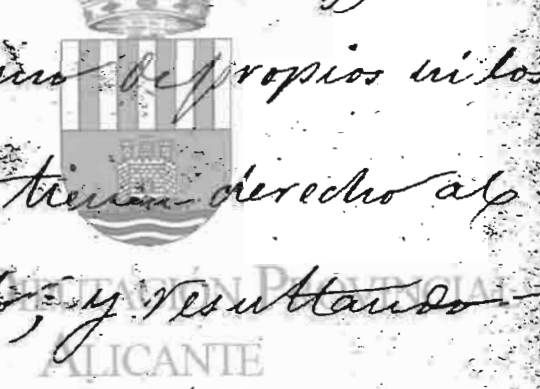 de propios ni los
tienen derecho al
y resultando
DIPUTACIÓN PROVINCIAL
ALICANTE